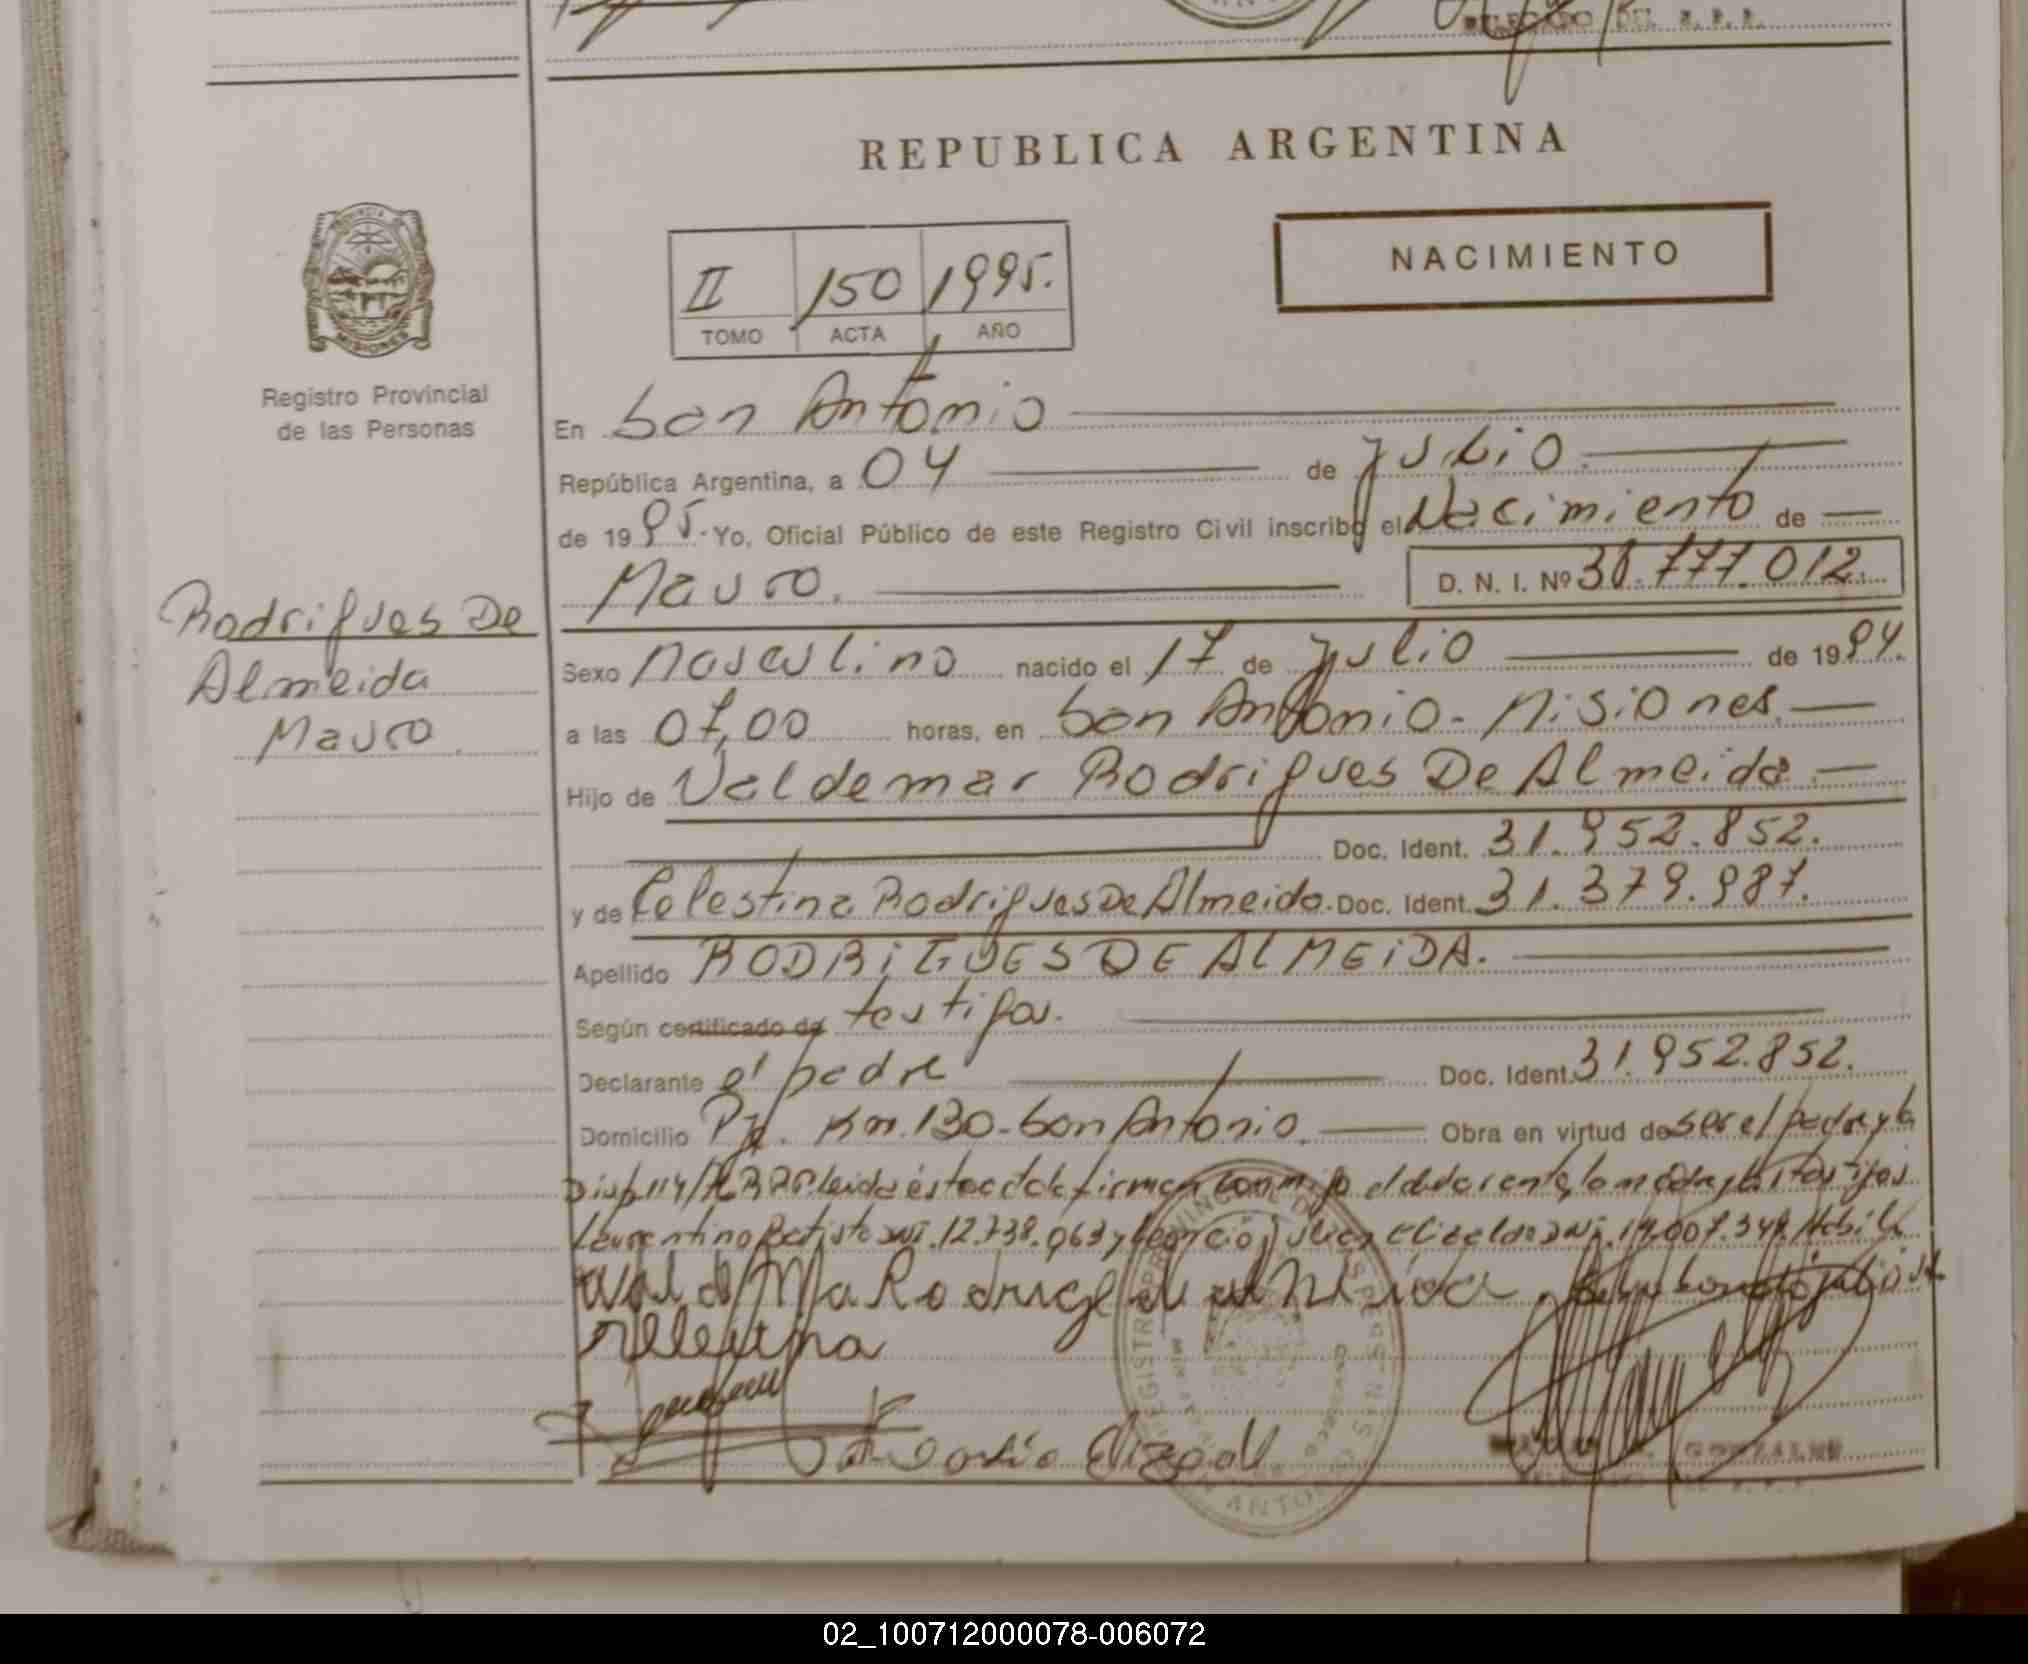 DELEGADO DEL R. P. P.
REPUBLICA ARGENTINA
NACIMIENTO
II 150 1995.
TOMO ACTA AÑO
PROVINCIA DE MISIONES
Registro Provincial
de las Personas
En San Antonio
República Argentina, a 04 de Julio.
de 1995. Yo, Oficial Público de este Registro Civil inscribo el Nacimiento de
Mauro. D. N. I. Nº 38.777.012.
Rodrigues De
Almeida
Mauro.
Sexo Masculino nacido el 17 de Julio de 1994.
a las 07,00 horas, en San Antonio - Misiones.
Hijo de Valdemar Rodrigues De Almeida.
Doc. Ident. 31.952.852.
y de Celestina Rodrigues De Almeida. Doc. Ident. 31.379.987.
Apellido RODRIGUES DE ALMEIDA.
Según certificado de testigos.
Declarante el padre Doc. Ident. 31.952.852.
Domicilio Pje. Km. 130 - San Antonio. Obra en virtud de ser el padre y la
Disp. 114/ leida ésta acta la firman conmigo el declarante, la madre y los testigos
Laurentino Batista DNI. 12.738.063 y Leoncio Julian Elizalde DNI.
SAN ANTONIO
GONZALEZ
02_100712000078-006072